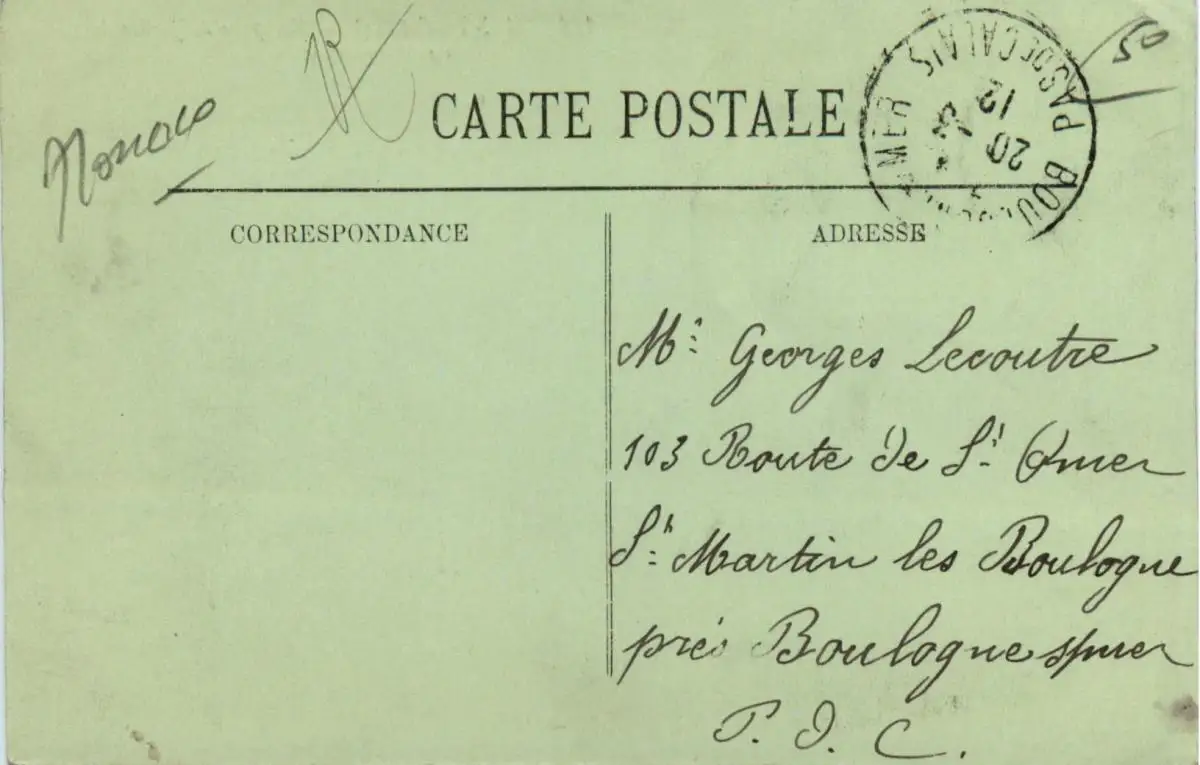 Monaco
50
CARTE POSTALE
BOULOGNE MER PAS DE CALAIS
20
12
CORRESPONDANCE
ADRESSE
Mr Georges Lecoutre
103 Route de St Omer
St Martin les Boulogne
près Boulogne s/mer
P. D. C.